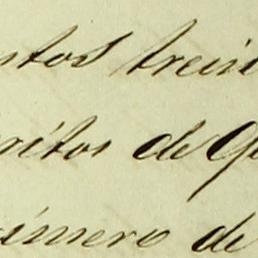 ntos trein
ritos de Q
úmero de